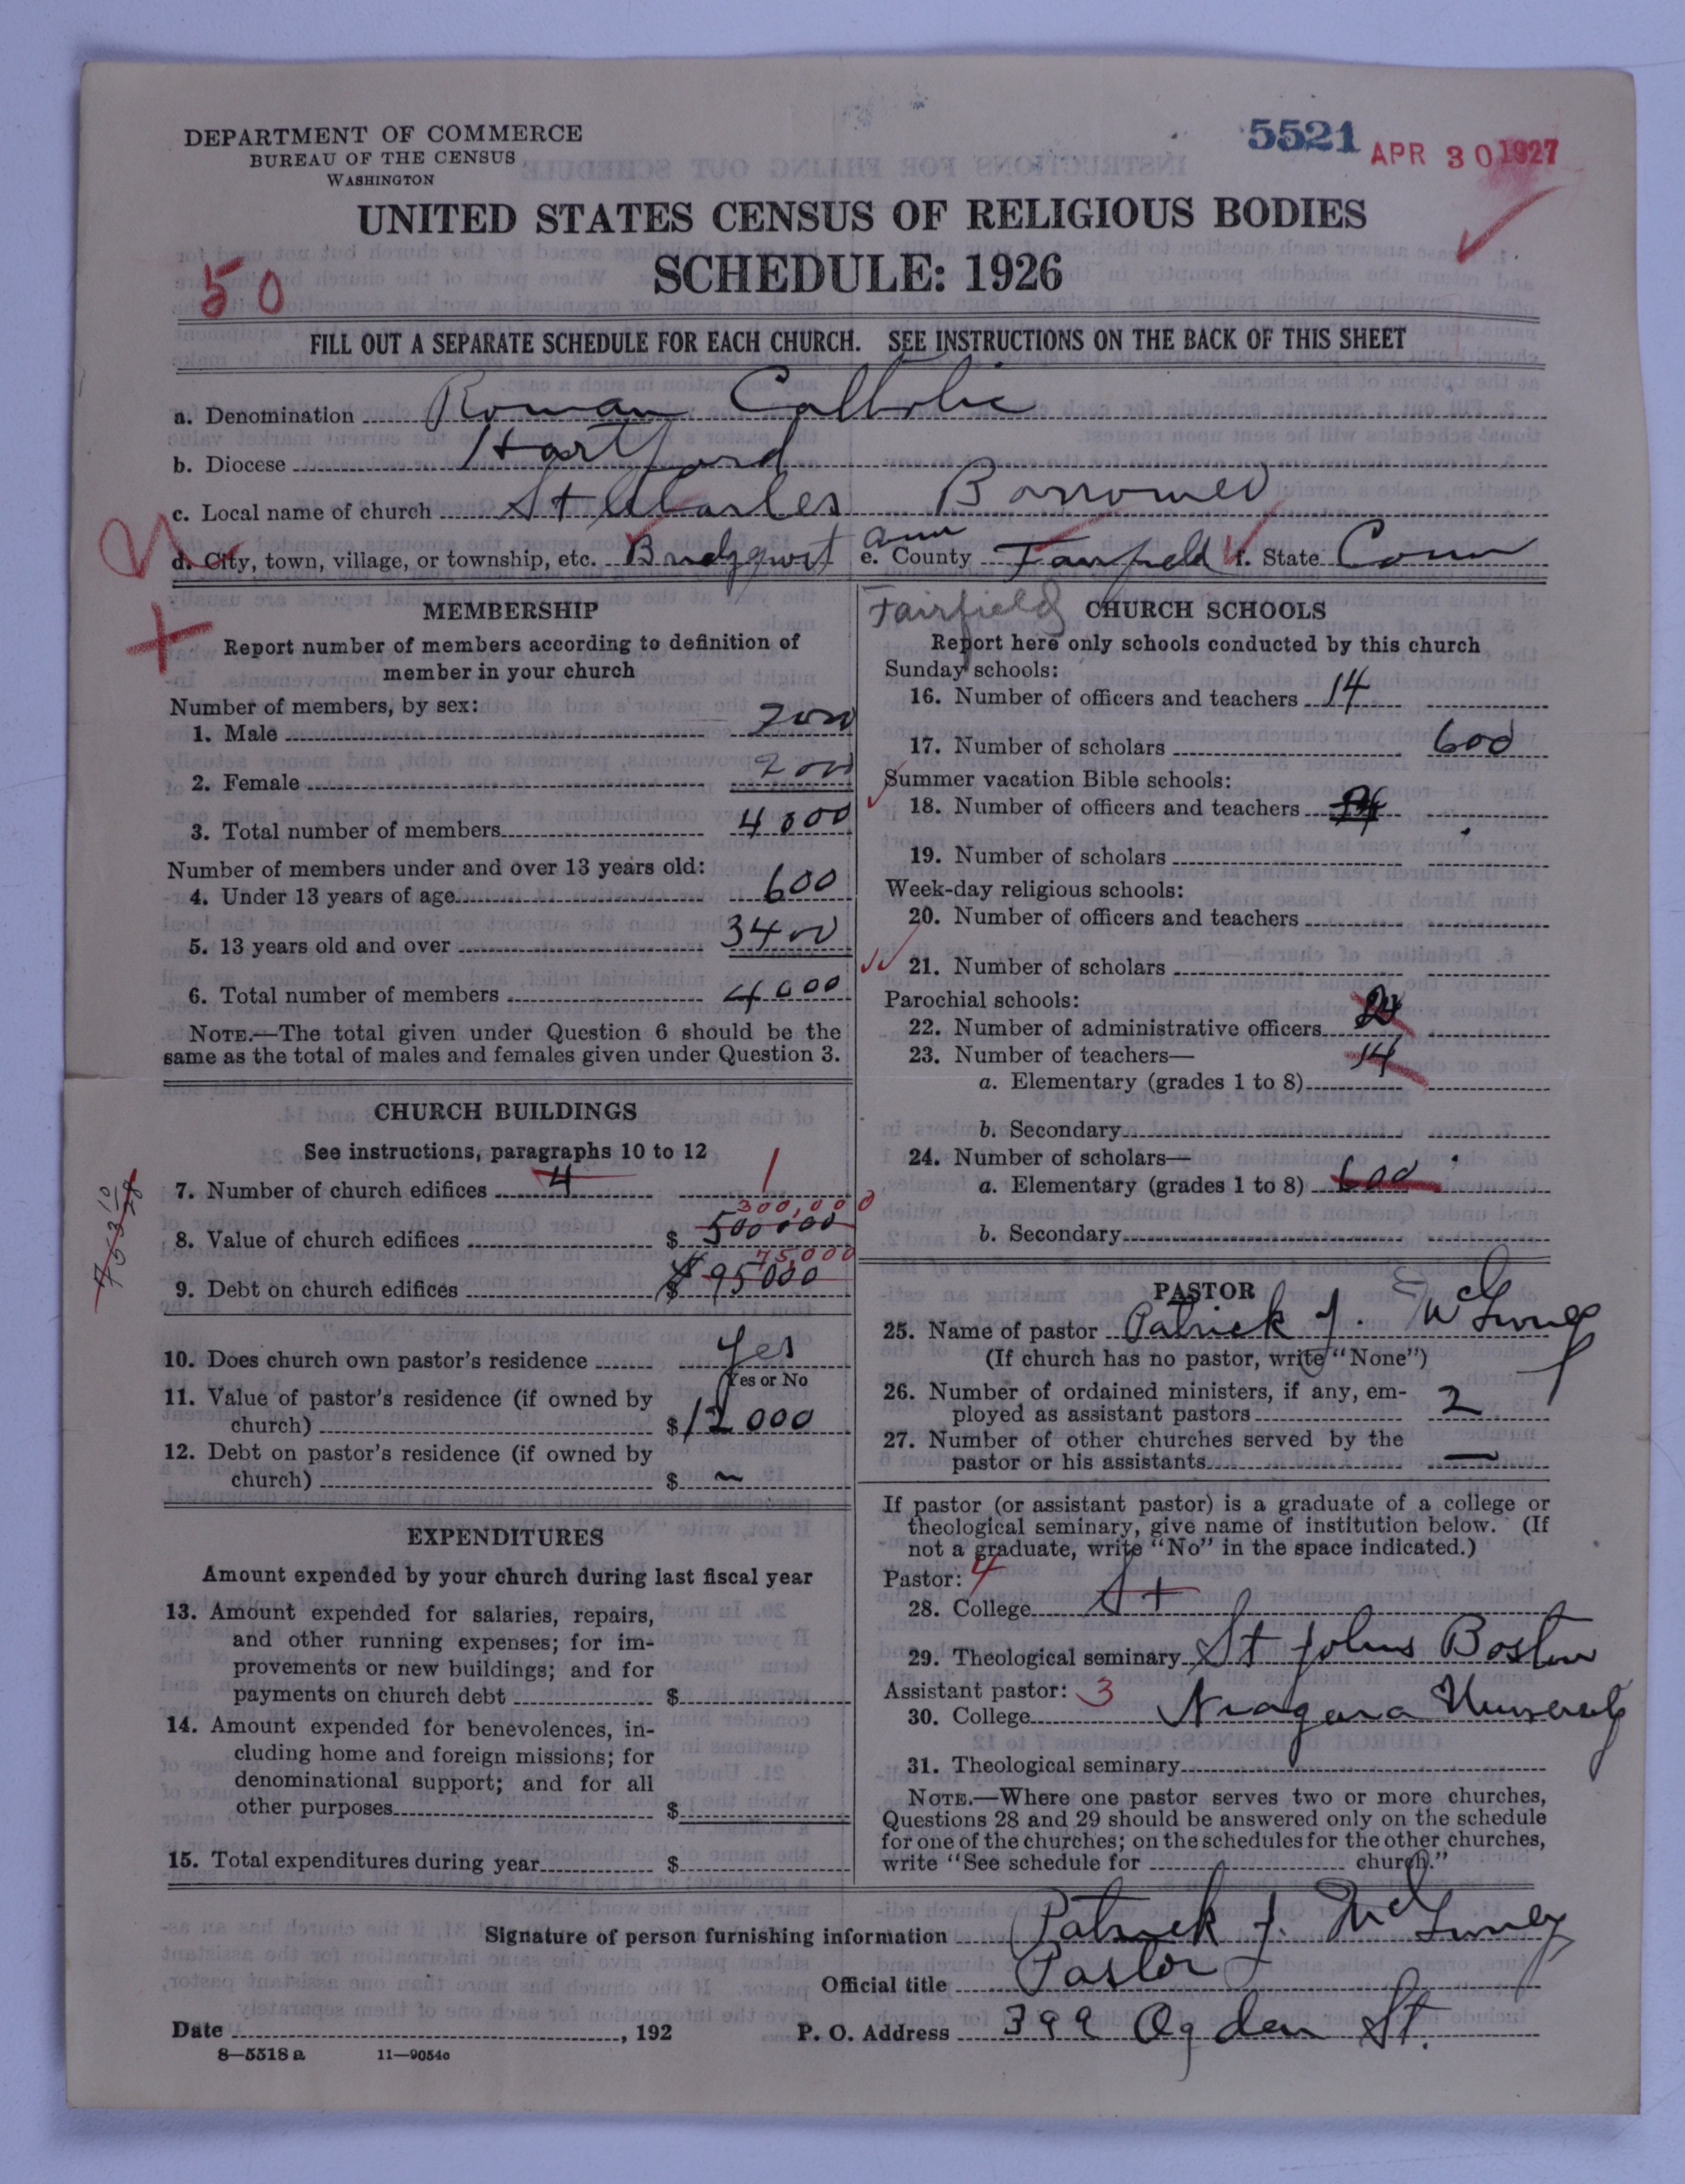 5521 APR 30 1927
DEPARTMENT OF COMMERCE
BUREAU OF THE CENSUS
WASHINGTON
UNITED STATES CENSUS OF RELIGIOUS BODIES
SCHEDULE: 1926
50
FILL OUT A SEPARATE SCHEDULE FOR EACH CHURCH. SEE INSTRUCTIONS ON THE BACK OF THIS SHEET
a. Denomination Roman Catholic
b. Diocese Hartford
c. Local name of church St Charles Borromeo
d. City, town, village, or township, etc. Bridgeport e. County Fairfield f. State Conn
MEMBERSHIP
Report number of members according to definition of
member in your church
Number of members, by sex:
1. Male 2000
2. Female 2000
3. Total number of members 4000
Number of members under and over 13 years old:
4. Under 13 years of age 600
5. 13 years old and over 3400
6. Total number of members 4000
NOTE.—The total given under Question 6 should be the
same as the total of males and females given under Question 3.
CHURCH BUILDINGS
See instructions, paragraphs 10 to 12
7. Number of church edifices 4 1
300,000
8. Value of church edifices $ 500000
75,000
9. Debt on church edifices $ 95000
10. Does church own pastor's residence Yes
Yes or No
11. Value of pastor's residence (if owned by
church) $ 12000
12. Debt on pastor's residence (if owned by
church) $ —
EXPENDITURES
Amount expended by your church during last fiscal year
13. Amount expended for salaries, repairs,
and other running expenses; for im-
provements or new buildings; and for
payments on church debt $
14. Amount expended for benevolences, in-
cluding home and foreign missions; for
denominational support; and for all
other purposes $
15. Total expenditures during year $
Fairfield CHURCH SCHOOLS
Report here only schools conducted by this church
Sunday schools:
16. Number of officers and teachers 14
17. Number of scholars 600
Summer vacation Bible schools:
18. Number of officers and teachers
19. Number of scholars
Week-day religious schools:
20. Number of officers and teachers
21. Number of scholars
Parochial schools:
22. Number of administrative officers
23. Number of teachers— 14
a. Elementary (grades 1 to 8)
b. Secondary
24. Number of scholars—
a. Elementary (grades 1 to 8) 600
b. Secondary
PASTOR
25. Name of pastor Patrick J.
(If church has no pastor, write "None")
26. Number of ordained ministers, if any, em-
ployed as assistant pastors 2
27. Number of other churches served by the
pastor or his assistants —
If pastor (or assistant pastor) is a graduate of a college or
theological seminary, give name of institution below. (If
not a graduate, write "No" in the space indicated.)
Pastor: 4
28. College St
29. Theological seminary St Johns Boston
Assistant pastor: 3
30. College Niagara University
31. Theological seminary
NOTE.—Where one pastor serves two or more churches,
Questions 28 and 29 should be answered only on the schedule
for one of the churches; on the schedules for the other churches,
write "See schedule for church."
Signature of person furnishing information Patrick J.
Official title Pastor
Date , 192 P. O. Address 399 Ogden St.
8—5518 a 11—9054c